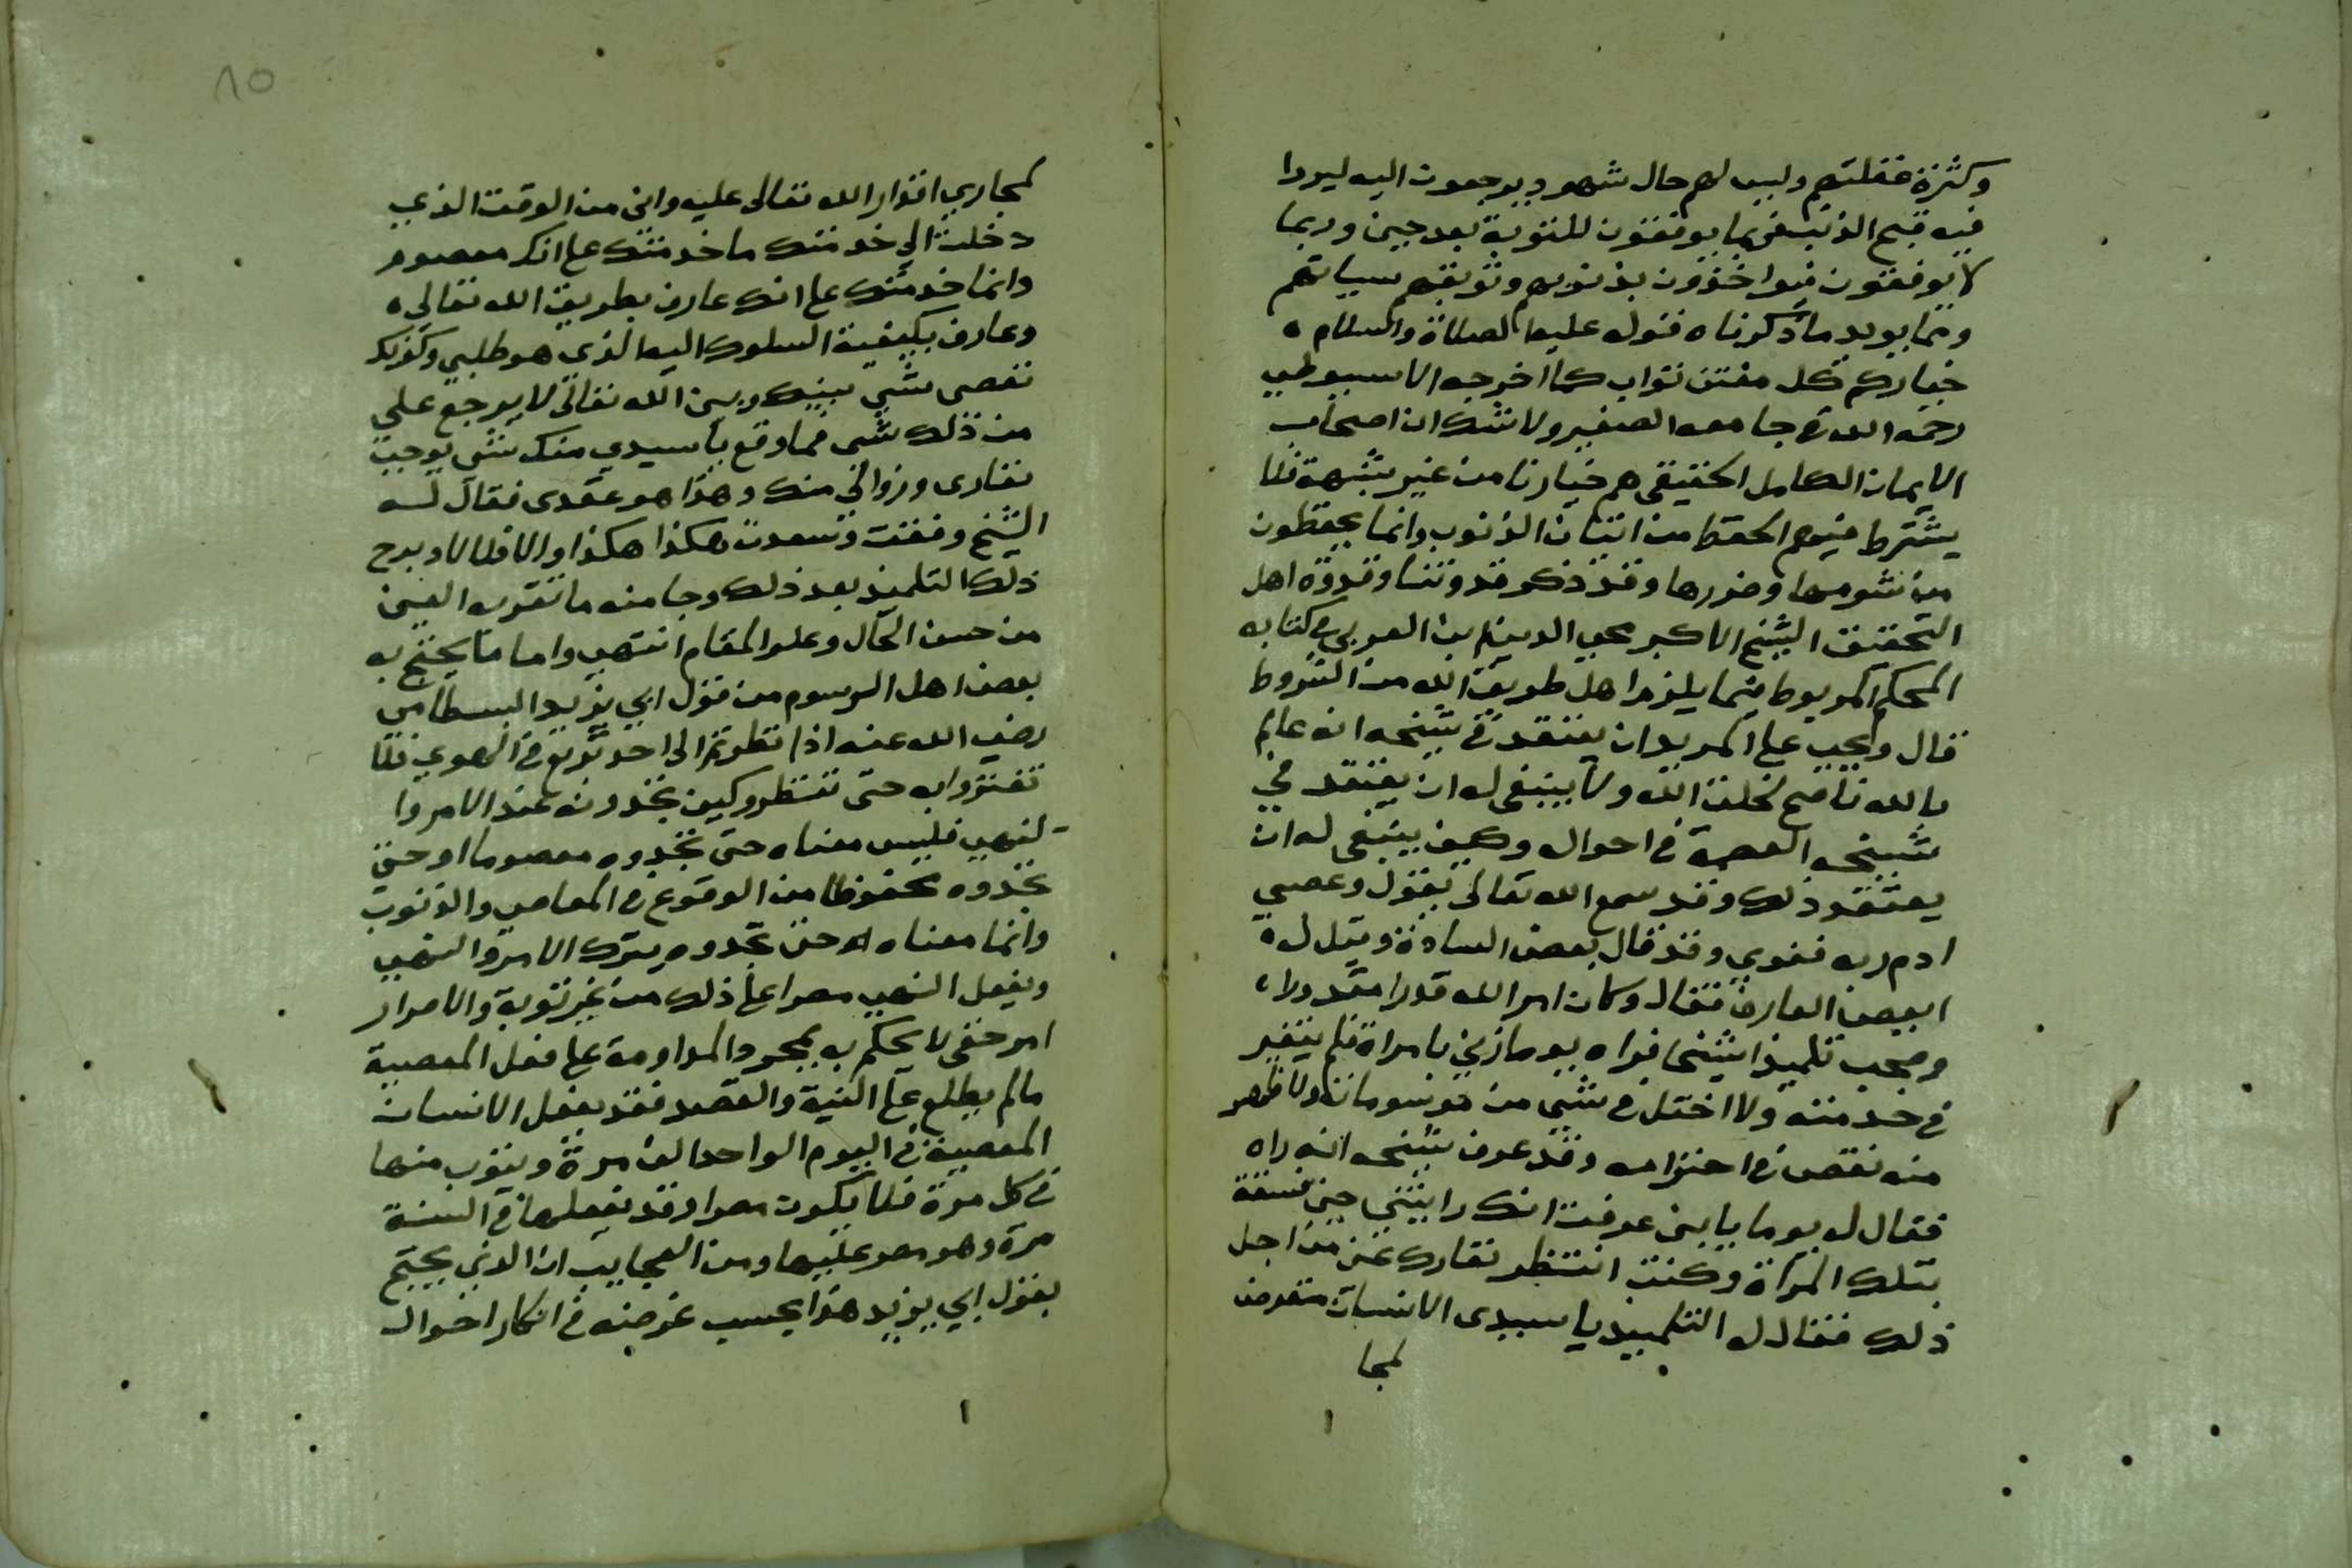 وكثرة غفلتهم وليس لهم حال شهود يرجعون اليه ليروا
فيه قبح الذنب فربما يوفقون للتوبة بعد حين وربما
لا يوفقون فيواخذون بذنوبهم وتوبقهم سياتهم
ومما يويد ما ذكرناه قوله عليه الصلاة والسلام
خياركم كل مفتن تواب كما اخرجه الاسيوطي
رحمه الله في جامعه الصغير ولا شك ان اصحاب
الايمان الكامل الحقيقي هم خيارنا من غير شبهة فلا
يشترط فيهم الحفظ من اتيان الذنوب وانما يحفظون
من شومها وضررها وقد ذكر قدوتنا وقدوة اهل
التحقيق الشيخ الاكبر محيي الدين بن العربي في كتابه
المحكم المربوط فيما يلزم اهل طريق الله من الشروط
قال ويجب على المريد ان يعتقد في شيخه انه عالم
بالله ناصح لخلق الله ولا ينبغي له ان يعتقد في
شيخه العصمة في احواله وكيف ينبغي له ان
يعتقد ذلك وقد سمع الله تعالى يقول وعصى
ادم ربه فغوى وقد قال بعض السادة وقيل له
ايعصى العارف فقال وكان امر الله قدرا مقدورا
وصحب تلميذ شيخا فراه يوما زنى بامراة فلم يتغير
في خدمته ولا اختل في شي من مرسوماته ولا ظهر
منه نقص في احترامه وقد عرف شيخه انه راه
فقال له يوما يا بني عرفت انك رايتني حين فسقت
بتلك المراة وكنت انتظر نفارك عني من اجل
ذلك فقال له التلميذ يا سيدي الانسان متعرض
لمجا
لمجاري اقدار الله تعالى عليه واني من الوقت الذي
دخلت الى خدمتك ما خدمتك على انك معصوم
وانما خدمتك على انك عارف بطريق الله تعالى
وعارف بكيفية السلوك اليه الذي هو طلبي وكونك
تعصى شي بينك وبين الله تعالى لا يرجع علي
من ذلك شي فما وقع يا سيدي منك شي يوجب
نفاري وزوالي منك وهذا هو عقدى فقال له
الشيخ وفقت وسعدت هكذا هكذا والا فلا لا وبرح
ذلك التلميذ بعد ذلك وجا منه ما تقر به العين
من حسن الحال وعلو المقام انتهى واما ما يحتج به
بعض اهل الرسوم من قول ابي يزيد البسطامي
رضي الله عنه اذا نظرتم الى احد تربع في الهوى فلا
تغتروا به حتى تنظروا كيف تجدونه عند الامر وا
لنهى فليس معناه حتى تجدوه معصوما او حتى
تجدوه محفوظا من الوقوع في المعاصي والذنوب
وانما معناه حتى تجدوه يترك الامر والنهي
ويفعل النهي مصرا على ذلك من غير توبة والاصرار
امر خفي لا يحكم به بمجرد المداومة على فعل المعصية
مالم يطلع على النية والقصد فقد يفعل الانسان
المعصية في اليوم الواحد الف مرة ويتوب منها
في كل مرة فلا يكون مصرا وقد يفعلها في السنة
مرة وهو مصر عليها ومن العجايب ان الذي يحتج
بقول ابي يزيد هذا بحسب غرضه في انكار احوال